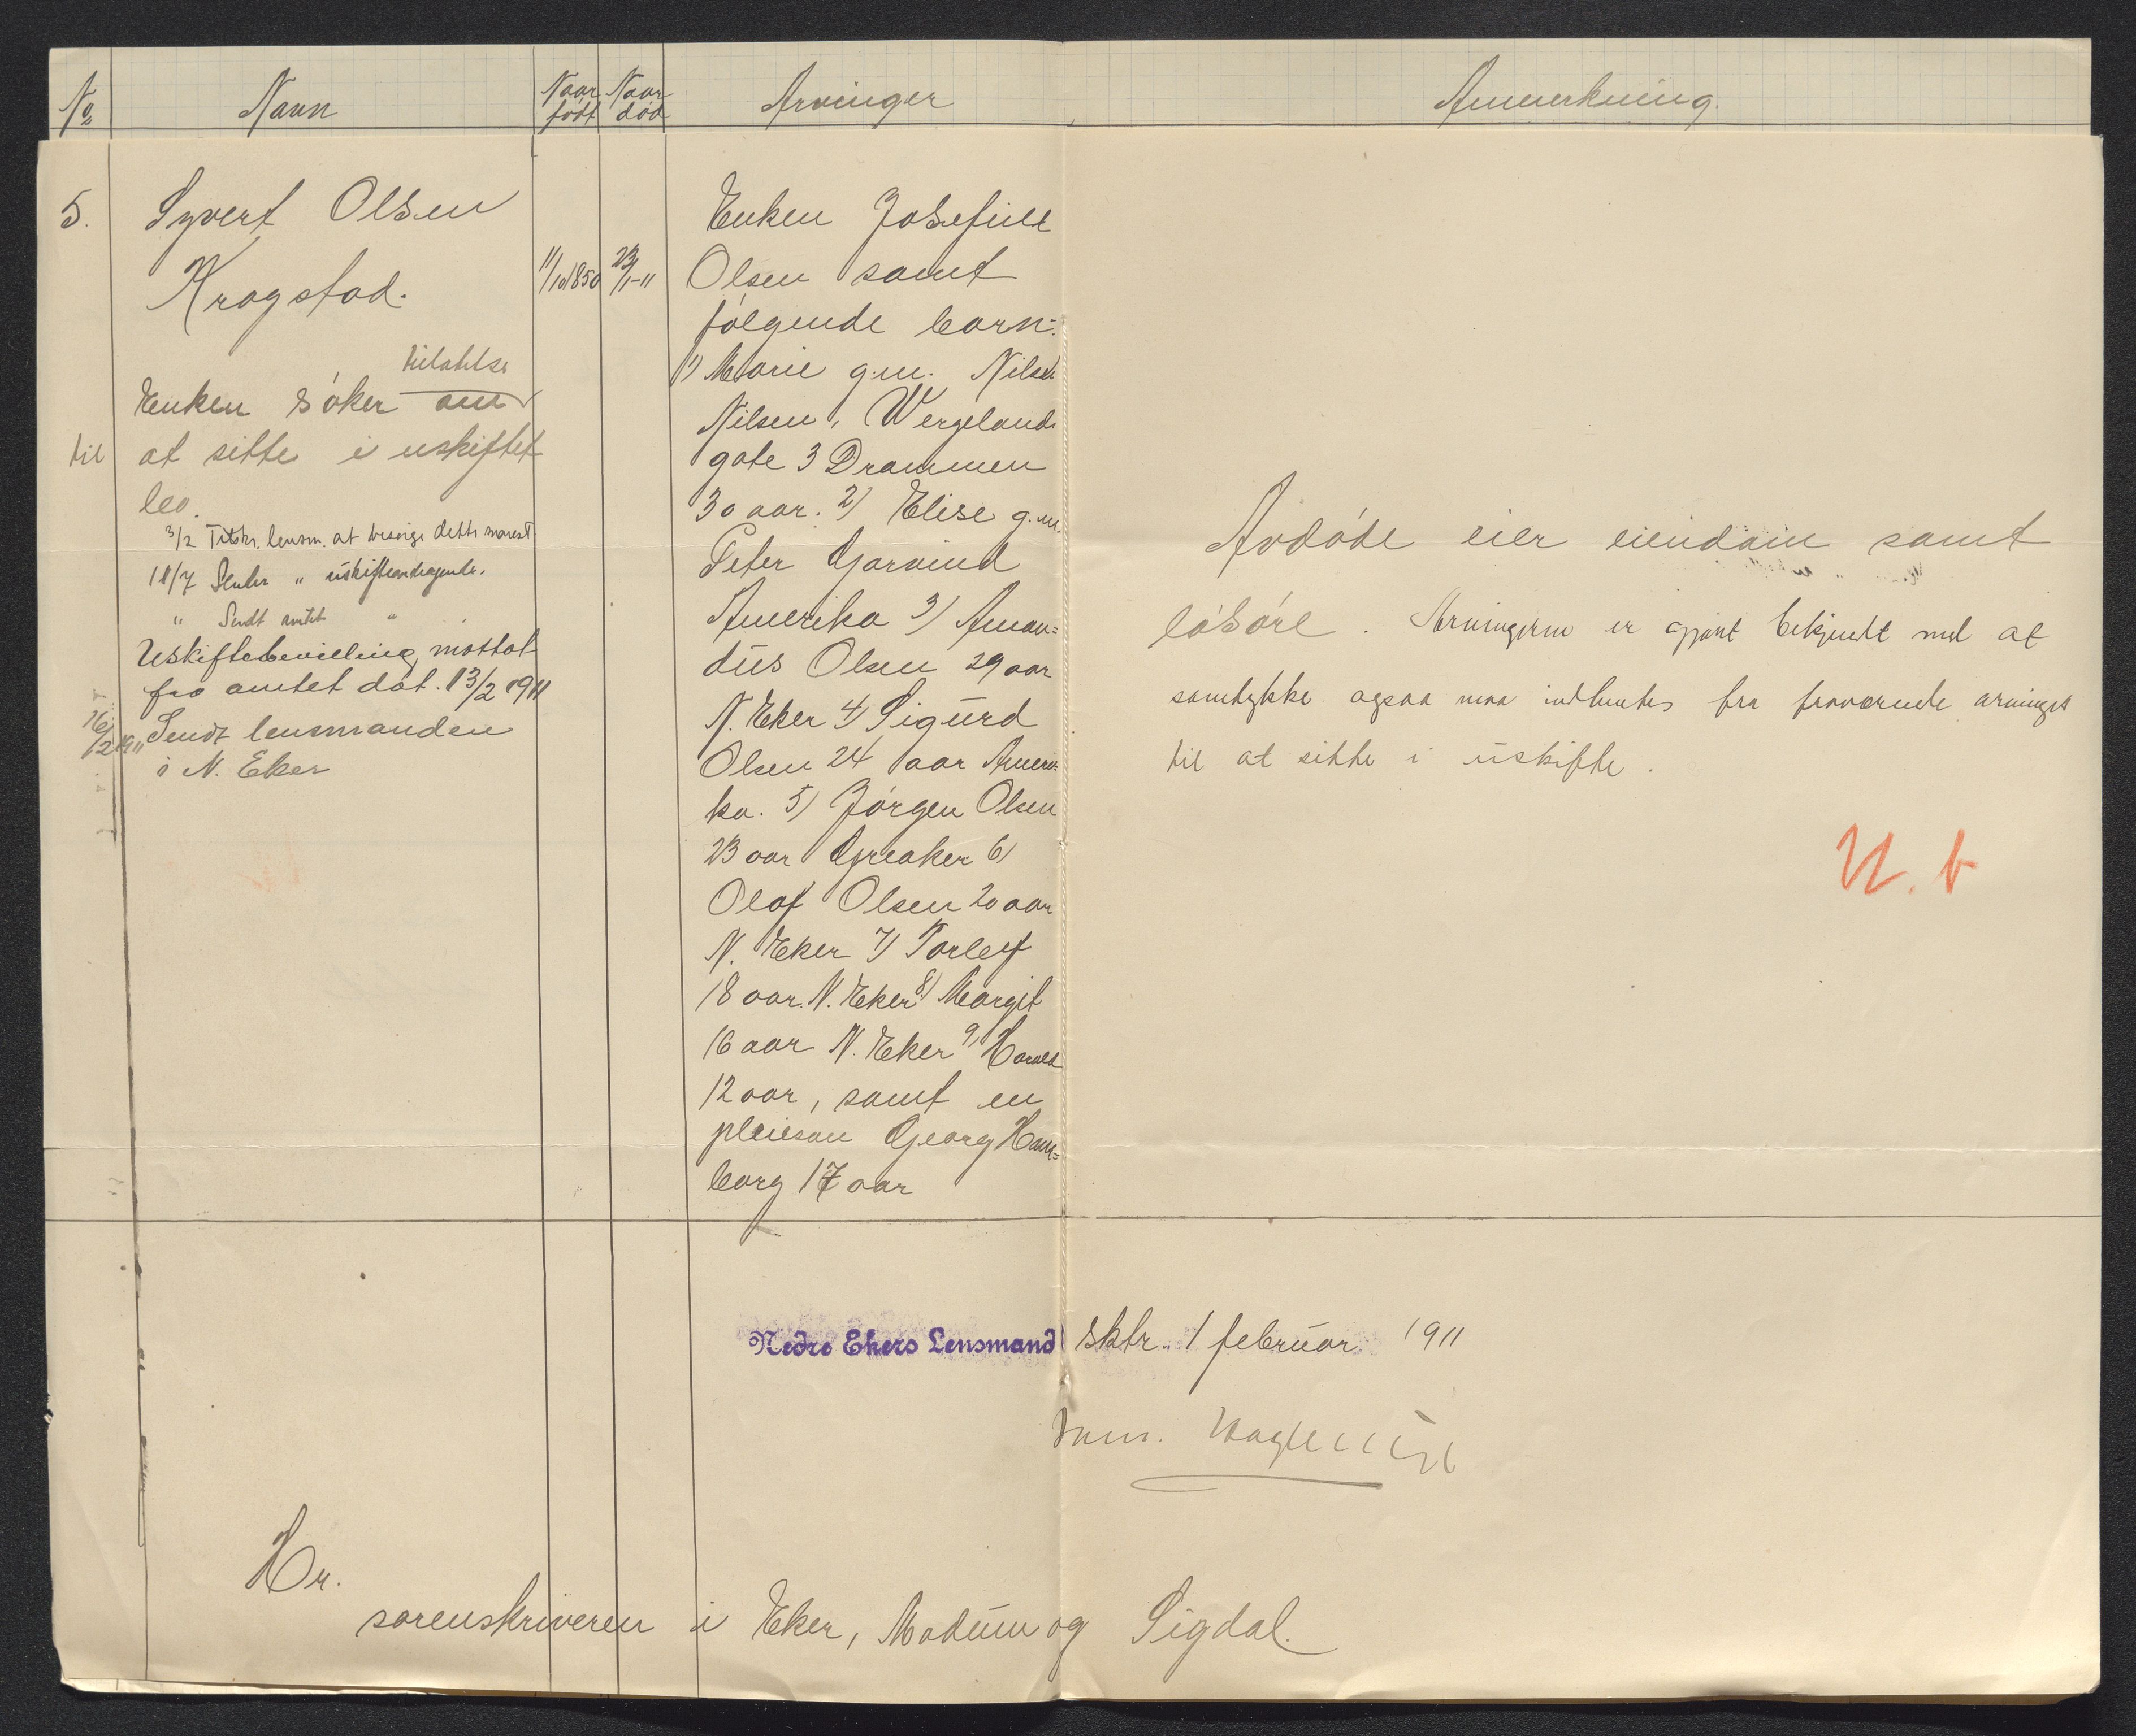 No Navn Naar født Naar død Arvinger Anmerkning.
5. Syvert Olsen
Krogstad.
11/10 1850 23/1-11
tilatelse
Enken søker om
til at sitte i uskiftet
bo.
3/2 Tilskr. lensm. at besørge dette snarest
" Sendt amtet "
Uskiftebevilling mottat
fra amtet dat. 13/2 1911
16/2 1911 Sendt lensmanden
i N. Eker
Enken Josefine
Olsen samt
følgende barn:
1) Marie g.m. Nils
Nilsen, Wergelands
gate 3 Drammen
30 aar. 2) Elise g.m.
Peter Gorvind
Amerika 3) Aman=
dus Olsen 29 aar
N. Eker 4) Sigurd
Olsen 24 aar Ameri-
ka. 5) Jörgen Olsen
23 aar Greaker 6)
Olaf Olsen 20 aar
N. Eker 7) Torleif
18 aar. N. Eker 8) Margit
16 aar N. Eker 9) Harald
12 aar, samt en
pleiesøn Georg Ham=
borg 17 aar
Avdøde eier eiendom samt
løsøre. Arvingerne er gjort bekjendt med at
samtykke ogsaa maa indhentes fra fraværende arvinger
til at sitte i uskifte.
U. b
Nedre Ekers Lensmand sktr. 1 februar 1911
Hr.
sorenskriveren i Eker, Modum og Sigdal.